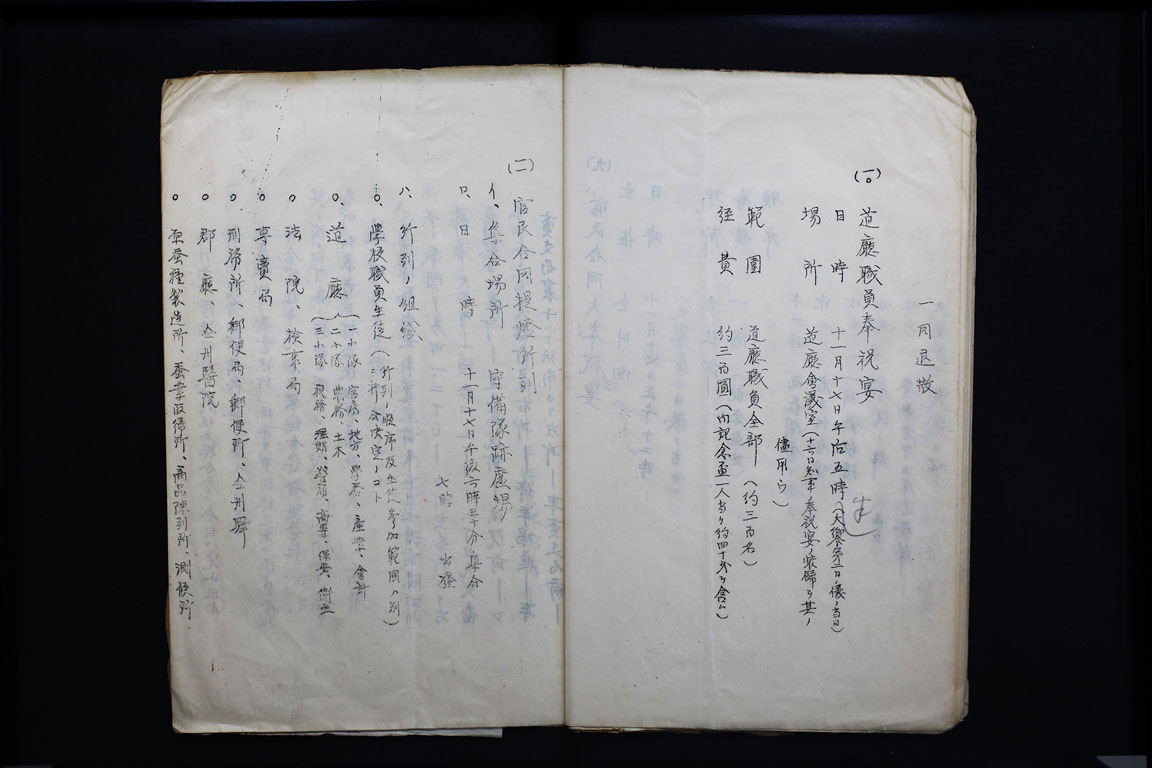 一同退散
(一〇) 道廳職員奉祝宴
日時 十一月十七日午后五時(大饗第二日ノ儀ノ当日)
場所 道廳會議室(十六日知事ノ奉祝宴ノ装飾ヲ其ノ
儘用フ)
範圍 道廳職員全部 (約三百名)
経費 約三百圓(内記念盃一人当リ約四十銭ヲ含ム)
(一一) 官民合同提燈行列
イ、集合場所 守備隊跡廣場
ロ、日時 十一月十七日午後六時三十分集合
七時出發
ハ、行列ノ組織
○、學校職員生徒(行列ノ順序及生徒参加範囲ハ別ニ
打合決定ノコト)
○、道廳
一小隊 官房、地方、學務、産業、會計
二小隊 農務、土木
三小隊 税務、理財、警務、高等、保安、衛生
○ 法院、検事局
○ 專賣局
○、刑務所、郵便局、郵便所、全州驛
○ 郡廳、全州醫院
○ 原蚕種製造所、蚕業取締所、商品陳列所、測候所、